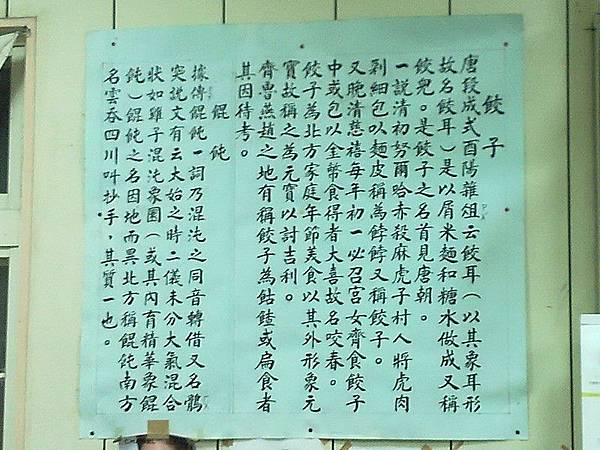 餃子
唐段成式酉陽雜俎云餃耳（以其象耳形
故名餃耳）是以屑米麵和糖水做成又稱
餃兒。是餃子之名首見唐朝。
一說清初努爾哈赤殺麻虎子村人將虎肉
剁細包以麵皮稱為餑餑又稱餃子。
又晚清慈禧每年初一必召宮女齊食餃子
中或包以金幣食得者大喜故名咬春。
餃子為北方家庭年節美食以其外形象元
寶故稱之為元寶以討吉利。
齊魯燕趙之地有稱餃子為餶饳或扁食者
其因待考。
餛飩
據傳餛飩一詞乃混沌之同音轉借又名鶻
突說文有云太始之時二儀未分大氣混合
狀如雞子混沌象圓（或其內有精華象餛
飩）餛飩之名因地而異北方稱餛飩南方
名雲吞四川叫抄手，其質一也。